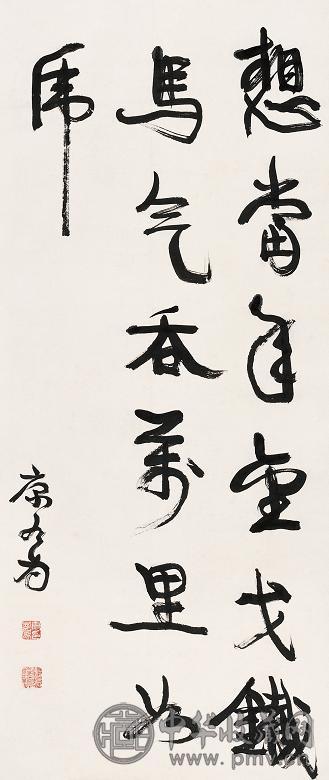 想當年金戈鐵
馬气吞萬里如
虎
康有為
中华收藏网
www.pmvip.cn